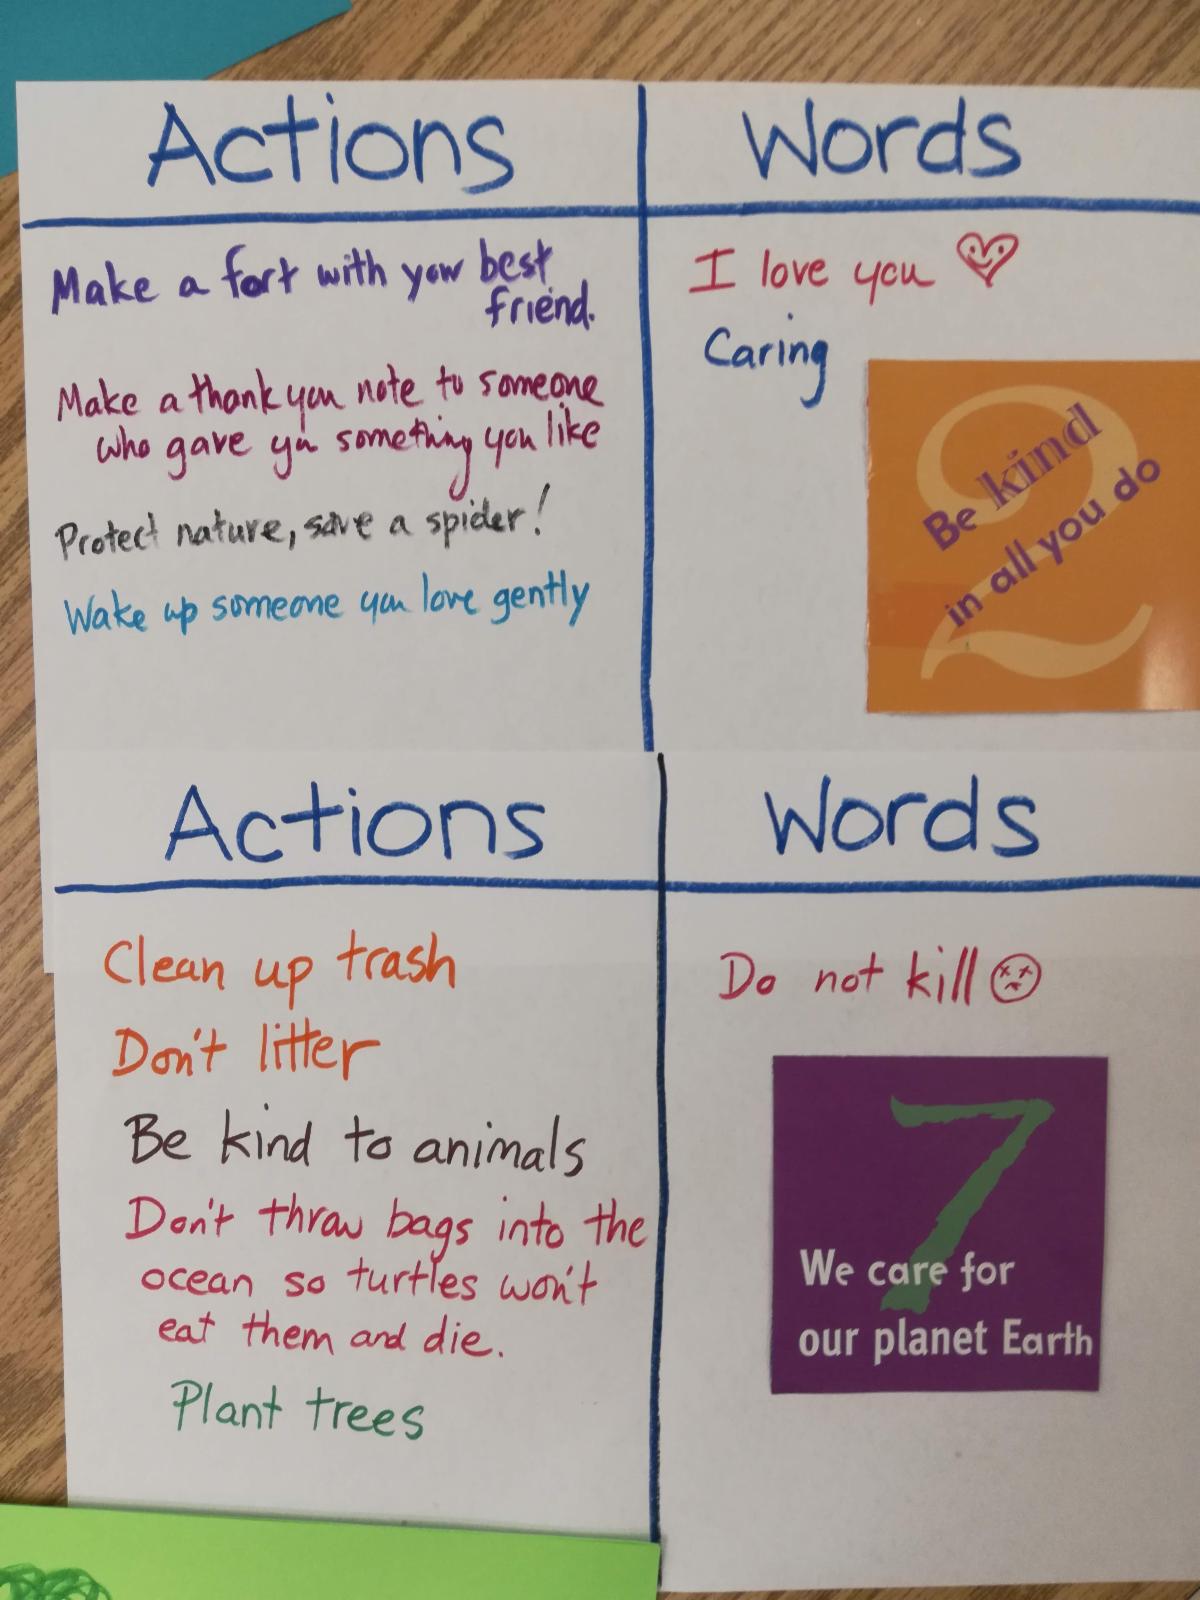 Actions
Words
Make a fort with your best
friend.
Make a thank you note to someone
who gave you something you like
Protect nature, save a spider!
Wake up someone you love gently
I love you
Caring
2
Be kind
in all you do
Actions
Words
Clean up trash
Don't litter
Be kind to animals
Don't throw bags into the
ocean so turtles won't
eat them and die.
Plant trees
Do not kill
7
We care for
our planet Earth